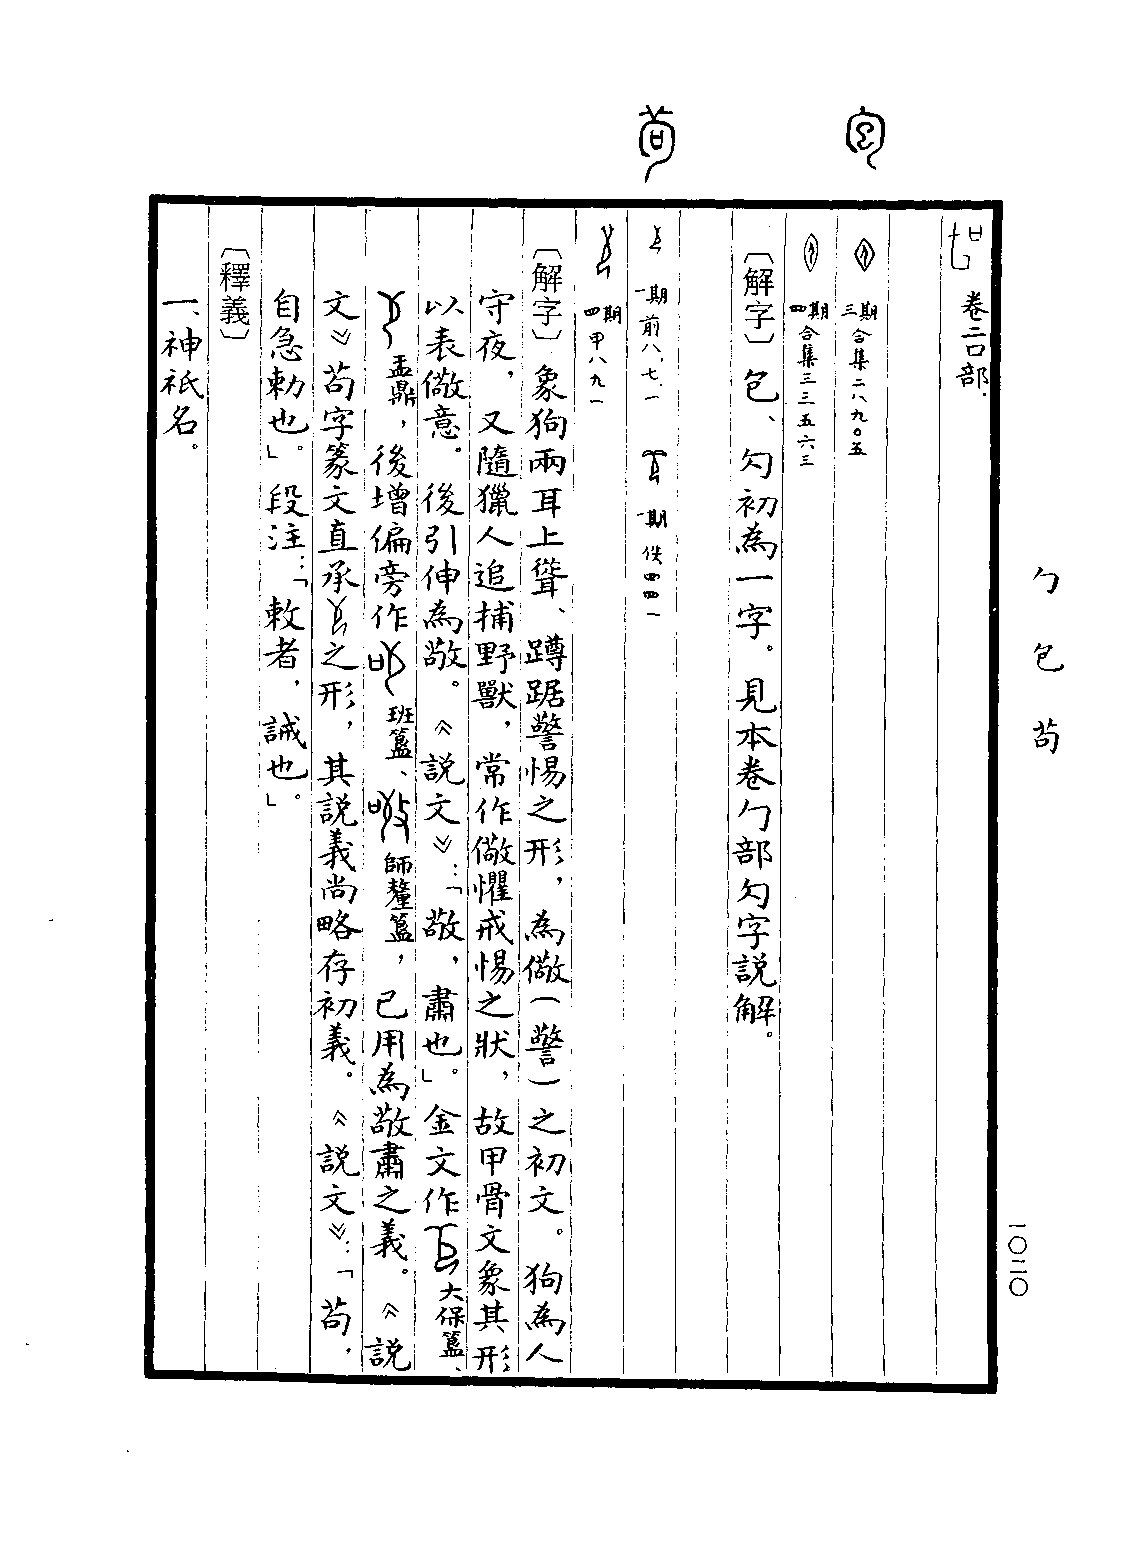 勹 包 茍
一〇二〇
卷二口部.
三期 合集二八九〇五
四期 合集三三五六三
〔解字〕包、勽初為一字。見本卷勹部勽字說解。
一期 前八.七.一 一期 佚四四一
四期 甲八九一
〔解字〕象狗兩耳上聳、蹲踞警惕之形，為儆(警)之初文。狗為人
守夜，又隨獵人追捕野獸，常作儆懼戒惕之狀，故甲骨文象其形
以表儆意。後引伸為敬。《說文》：「敬，肅也。」金文作 大保簋、
盂鼎，後增偏旁作 班簋、 師𠩺簋，已用為敬肅之義。《說
文》茍字篆文直承 之形，其說義尚略存初義。《說文》：「茍，
自急勅也。」段注：「敕者，誡也。」
〔釋義〕
一、神祇名。